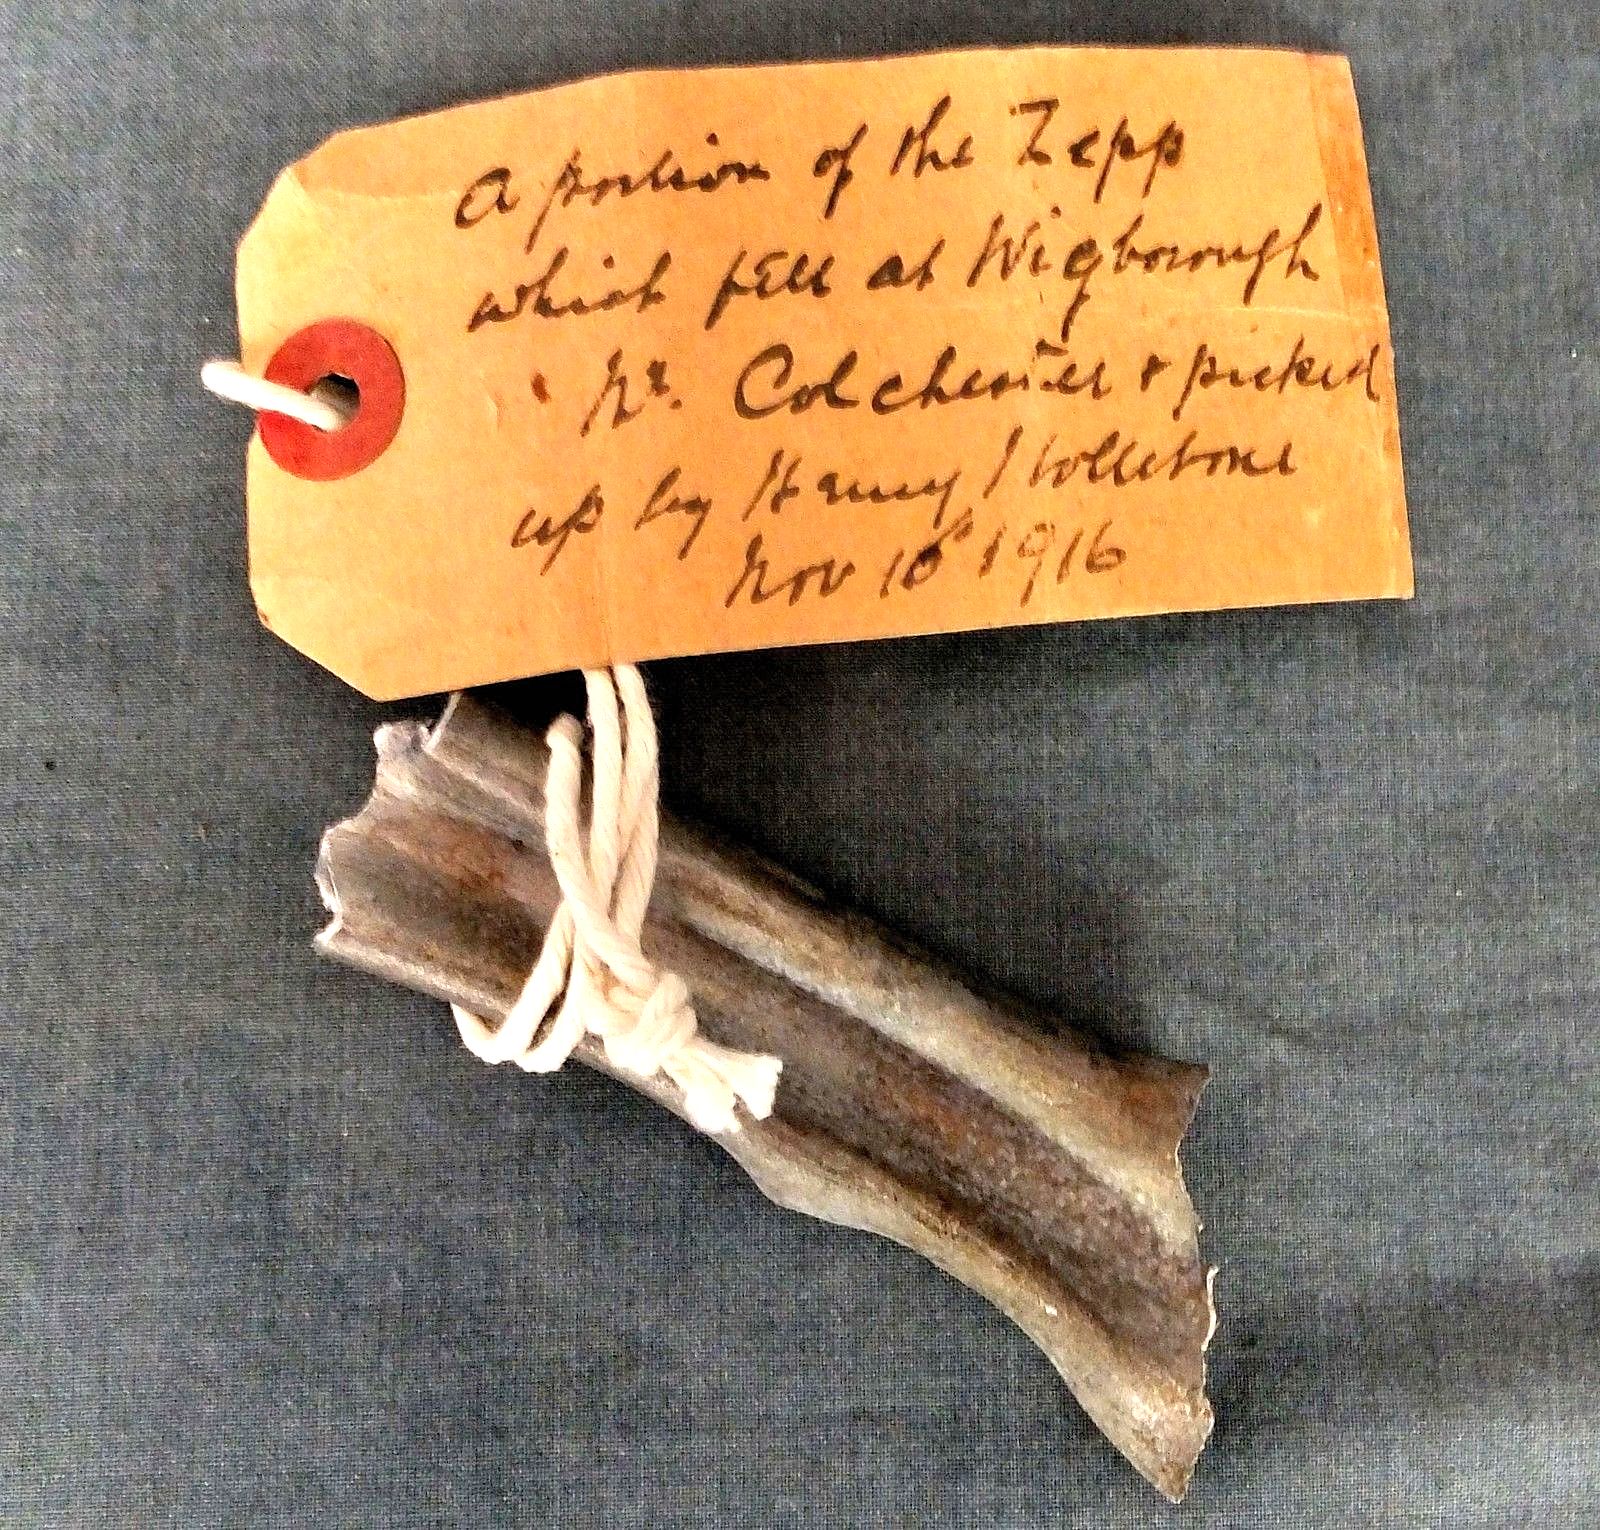 A portion of the Zepp
which fell at Wigborough
Nr. Colchester & picked
up by Henry
Nov 1916